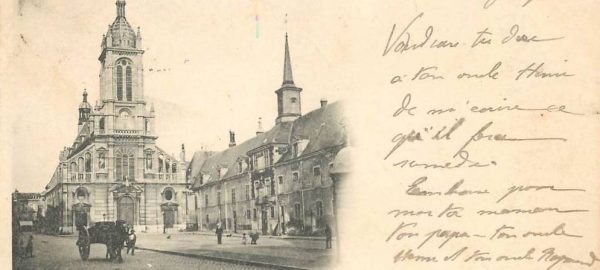 Voudrais tu dire
a ton oncle Henri
de m'ecrire ce
qu'il fera
samedi.
Embrasse pour
moi ta maman
ton papa - ton oncle
Henri et ton oncle Raymond